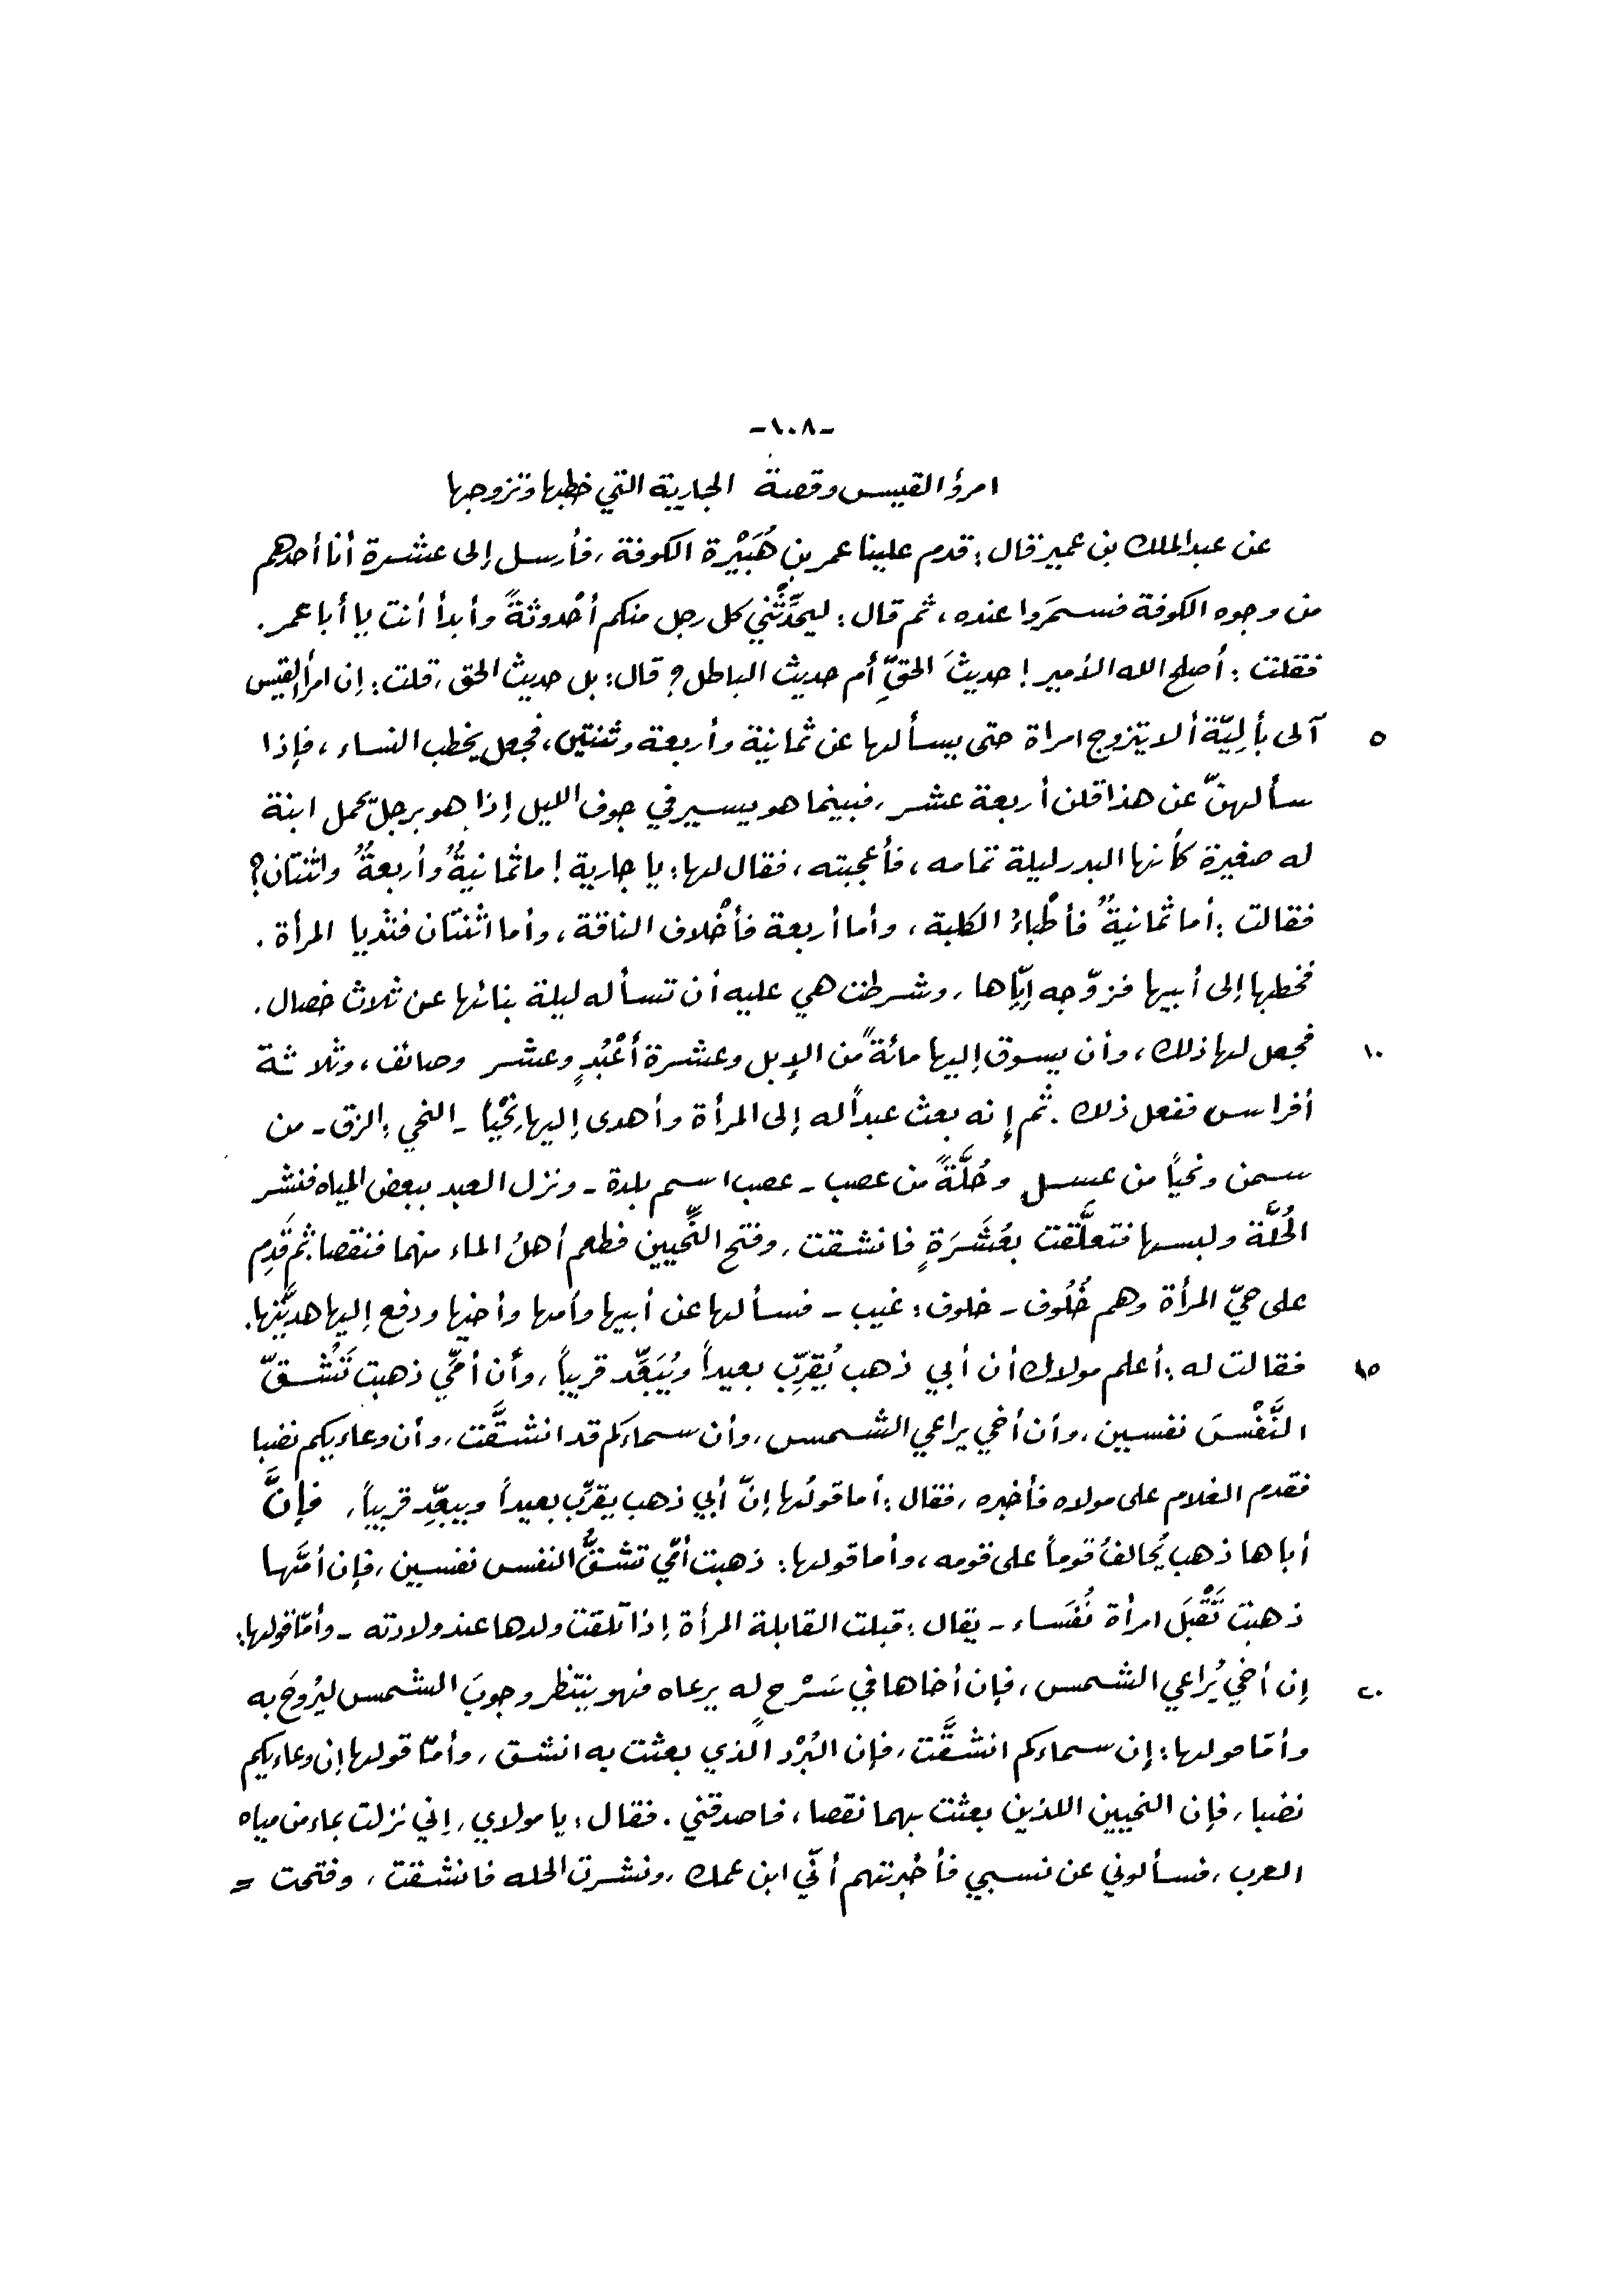 -١٠٨-
امرؤ القيس وقصة الجارية التي خطبها وتزوجها
عن عبد الملك بن عمير قال: قدم علينا عمر بن هُبَيْرة الكوفة، فأرسل إلى عشرة أنا أحدهم
من وجوه الكوفة فسمَروا عنده، ثم قال: ليحدِّثْني كل رجل منكم أُحدوثةً وأبدأ أنت يا أبا عمر.
فقلت: أصلح الله الأمير! حديثَ الحقِّ أم حديث الباطل؟ قال: بل حديث الحق، قلت: إن امرأ القيس
٥ آلى بأَلِيّة ألا يتزوج امراة حتى يسألها عن ثمانية وأربعة وثنتين، فجعل يخطب النساء، فإذا
سألهنّ عن هذا قلن أربعة عشر، فبينما هو يسير في جوف الليل إذا هو برجل يحمل ابنة
له صغيرة كأنها البدر ليلة تمامه، فأعجبته، فقال لها: يا جارية! ما ثمانيةٌ وأربعةٌ واثنتان؟
فقالت: أما ثمانيةٌ فأطْباءُ الكلبة، وأما أربعة فأخْلاف الناقة، وأما اثنتان فثديا المرأة.
فخطبها إلى أبيها فزوّجه إيّاها، وشرطت هي عليه أن تسأله ليلة بنائها عن ثلاث خصال.
١٠ فجعل لها ذلك، وأن يسوق إليها مائةً من الإبل وعشرة أعْبُدٍ وعشر وصائف، وثلاثة
أفراس ففعل ذلك. ثم إنه بعث عبداً له إلى المرأة وأهدى إليها نِحْياً - النحي: الزق - من
سمن ونحياً من عسل وحُلَّةً من عصب - عصب اسم بلدة - ونزل العبد ببعض المياه فنشر
الحُلَّة ولبسها فتعلَّقت بعُشَرَةٍ فانشقت، وفتح النِّحيين فطعم أهلُ الماء منهما فنقصا، ثم قَدِم
على حيّ المرأة وهم خُلُوف - خلوف: غيب - فسألها عن أبيها وأمها وأخيها ودفع إليها هديَّتها.
١٥ فقالت له: أعلم مولاك أن أبي ذهب يُقرِّب بعيداً ويُبَعِّد قريباً، وأن أمّي ذهبت تَشُقّ
النَّفْسَ نفسين، وأن أخي يراعي الشمس، وأن سماءكم قد انشقَّت، وأن وعاءيكم نضبا
فقدم الغلام على مولاه فأخبره، فقال: أما قولُها إنّ أبي ذهب يقرِّب بعيداً ويبعِّد قريباً، فإنَّ
أباها ذهب يُحالفُ قوماً على قومه، وأما قولها: ذهبت أمّي تشقُّ النفس نفسين، فإن أمَّها
ذهبت تَقْبَل امرأة نُفَساء - يقال: قبلت القابلة المرأة إذا تلقت ولدها عند ولادته - وأمّا قولها:
٢٠ إن أخي يُراعي الشمس، فإن أخاها في سَرْحٍ له يرعاه فهو ينتظر وجوبَ الشمس ليرُوحَ به
وأمّا مولها: إن سماءكم انشقَّت، فإن البُرْد الذي بعثت به انشق، وأمّا قولها إن وعاءيكم
نضبا، فإن النحيين اللذين بعثت بهما نقصا، فاصدقني. فقال: يا مولاي، إني نزلت بماء من مياه
العرب، فسألوني عن نسبي فأخبرتهم أنّي ابن عمك، ونشرت الحله فانشقت، وفتحت =